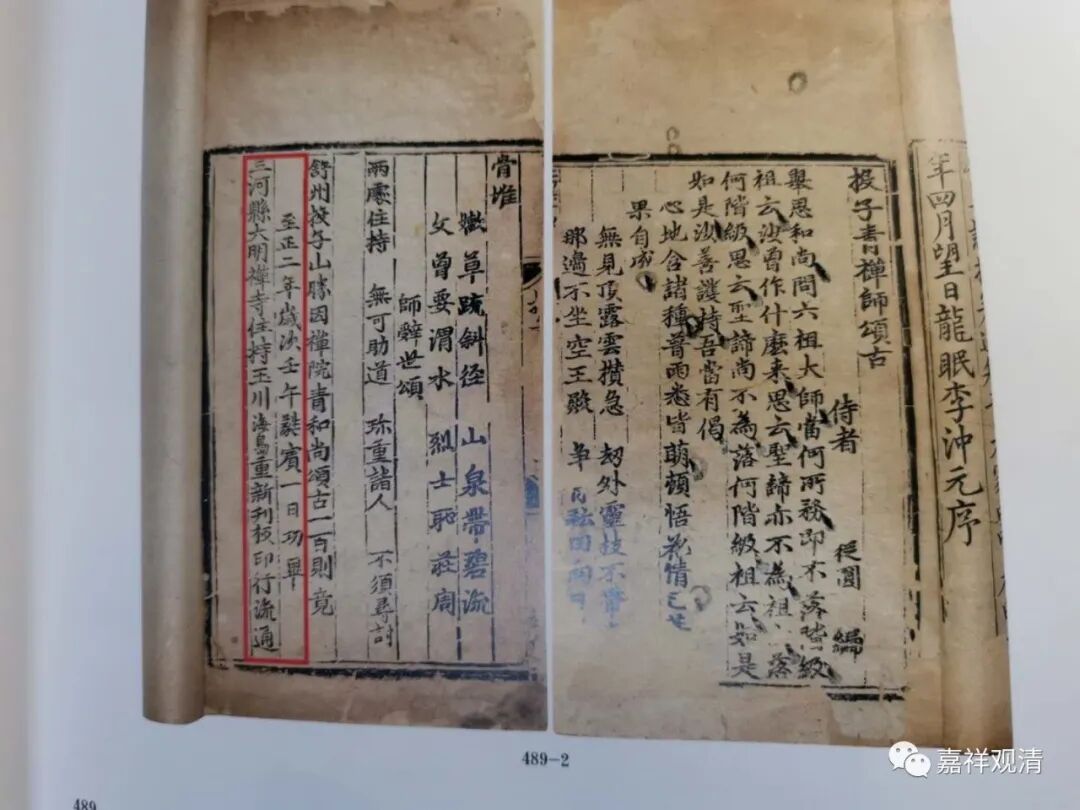 年四月望日龍眠李沖元序
投子青禪師頌古
侍者 從圓 編
舉思和尚問六祖大師當何所務即不落階級
祖云汝曾作什麼来思云聖諦亦不為祖云落
何階級思云聖諦尚不為落何階級祖云如是
如是汝善護持吾當有偈
心地含諸種普雨悉皆萌頓悟花情已
果自成
無見頂露雲攅急 劫外靈枝不帶
那邊不坐空王殿 争
骨堆
嫩草 斜径 山泉帶碧流
文曾要渭水 烈士恥莊周
師辭世頌
兩處住持 無可助道 珎重諸人 不須尋討
舒州投子山勝因禪院青和尚頌古一百則竟
至正二年歲次壬午蕤賓一日功畢
三河縣大明禪寺住持玉川海島重新刊板印行流通
489-2
489
嘉祥观清